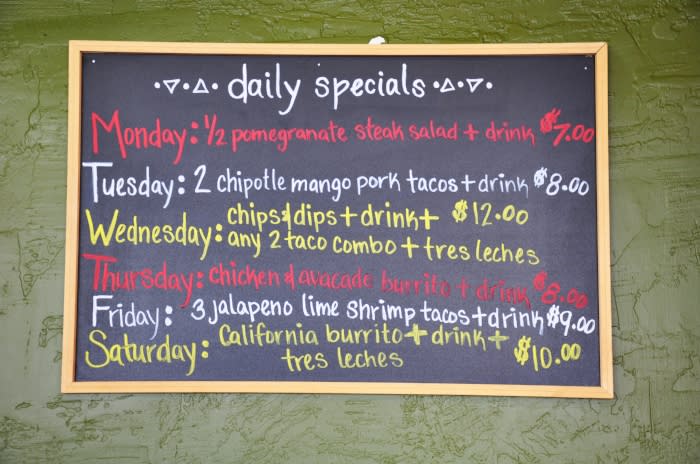 daily specials
Monday: ½ pomegranate steak salad + drink $7.00
Tuesday: 2 chipotle mango pork tacos + drink $8.00
Wednesday: chips & dips + drink + $12.00
any 2 taco combo + tres leches
Thursday: chicken & avacade burrito + drink $8.00
Friday: 3 jalapeno lime shrimp tacos + drink $9.00
Saturday: California burrito + drink + $10.00
tres leches